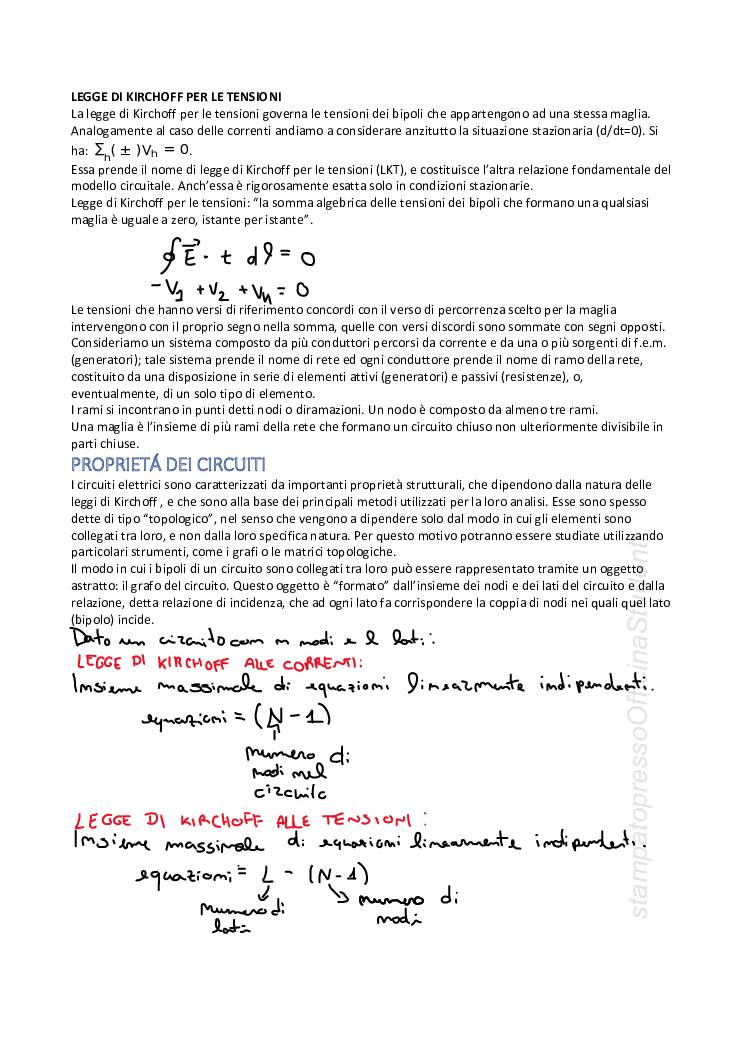 LEGGE DI KIRCHOFF PER LE TENSIONI
La legge di Kirchoff per le tensioni governa le tensioni dei bipoli che appartengono ad una stessa maglia.
Analogamente al caso delle correnti andiamo a considerare anzitutto la situazione stazionaria (d/dt=0). Si
ha: ∑ₕ( ± )Vₕ = 0.
Essa prende il nome di legge di Kirchoff per le tensioni (LKT), e costituisce l'altra relazione fondamentale del
modello circuitale. Anch'essa è rigorosamente esatta solo in condizioni stazionarie.
Legge di Kirchoff per le tensioni: “la somma algebrica delle tensioni dei bipoli che formano una qualsiasi
maglia è uguale a zero, istante per istante”.
∮E⃗ · t dl = 0
-V₁ + V₂ + Vₕ = 0
Le tensioni che hanno versi di riferimento concordi con il verso di percorrenza scelto per la maglia
intervengono con il proprio segno nella somma, quelle con versi discordi sono sommate con segni opposti.
Consideriamo un sistema composto da più conduttori percorsi da corrente e da una o più sorgenti di f.e.m.
(generatori); tale sistema prende il nome di rete ed ogni conduttore prende il nome di ramo della rete,
costituito da una disposizione in serie di elementi attivi (generatori) e passivi (resistenze), o,
eventualmente, di un solo tipo di elemento.
I rami si incontrano in punti detti nodi o diramazioni. Un nodo è composto da almeno tre rami.
Una maglia è l'insieme di più rami della rete che formano un circuito chiuso non ulteriormente divisibile in
parti chiuse.
PROPRIETÁ DEI CIRCUITI
I circuiti elettrici sono caratterizzati da importanti proprietà strutturali, che dipendono dalla natura delle
leggi di Kirchoff , e che sono alla base dei principali metodi utilizzati per la loro analisi. Esse sono spesso
dette di tipo “topologico”, nel senso che vengono a dipendere solo dal modo in cui gli elementi sono
collegati tra loro, e non dalla loro specifica natura. Per questo motivo potranno essere studiate utilizzando
particolari strumenti, come i grafi o le matrici topologiche.
Il modo in cui i bipoli di un circuito sono collegati tra loro può essere rappresentato tramite un oggetto
astratto: il grafo del circuito. Questo oggetto è “formato” dall'insieme dei nodi e dei lati del circuito e dalla
relazione, detta relazione di incidenza, che ad ogni lato fa corrispondere la coppia di nodi nei quali quel lato
(bipolo) incide.
Dato un circuito con n nodi e l lati:
LEGGE DI KIRCHOFF ALLE CORRENTI:
Insieme massimale di equazioni linearmente indipendenti.
equazioni = (N - 1)
numero di
nodi nel
circuito
LEGGE DI KIRCHOFF ALLE TENSIONI :
Insieme massimale di equazioni linearmente indipendenti.
equazioni = L - (N - 1)
numero di numero di
lati nodi
stampatopressoOfficinaStudenti